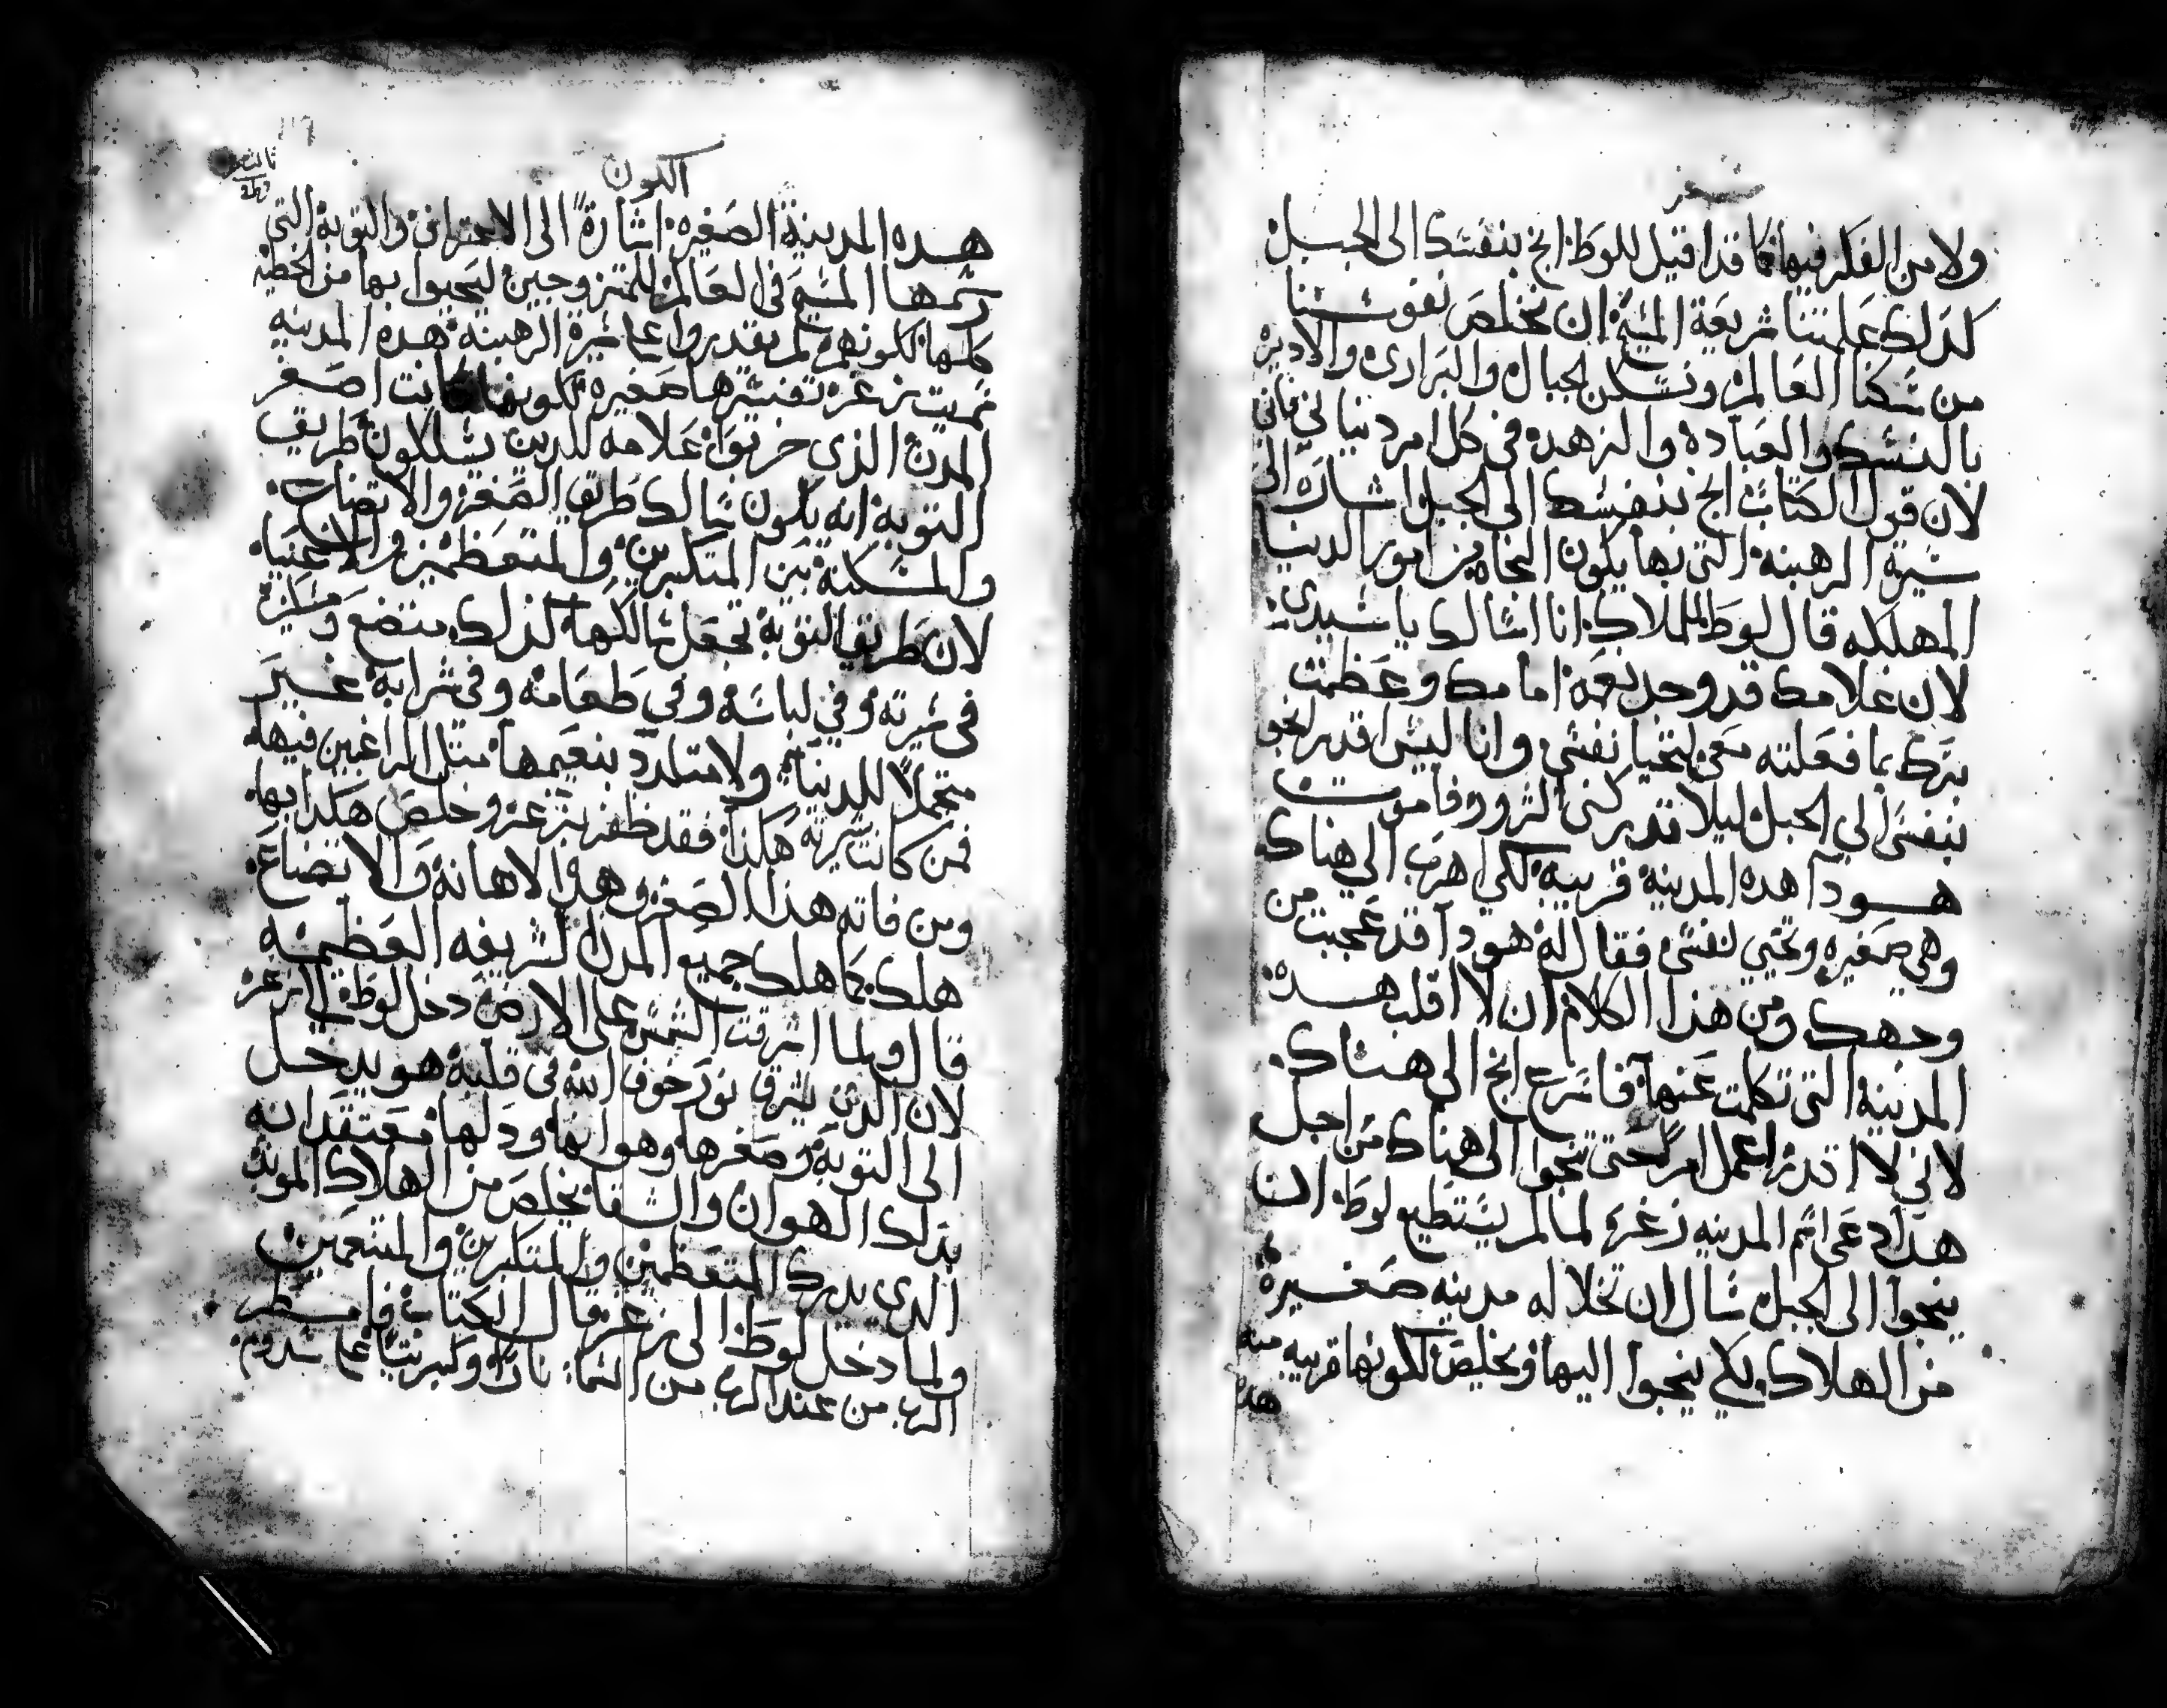 سفر
ولا من الفكر فيها كما قد اقيل للوط انج بنفسك الى الجبل
كدلك علمتنا شريعة المسيح ان نخلص نفوسنا
من سكنا العالم ونسكن الجبال والبرارى والاديره
بالنسك والعباده والزهده فى كل امر دنيانى فانى
لان قول الكتاب انج بنفسك الى الجبل اشاره الى
سيرة الرهبنه التى بها يكون النجاه من امور الدنيا
المهلكه قال لوط للملاك انا اسالك يا سيدى
لان غلامك قد وجد نعمه امامك وعظمت
برك بما فعلته معى لتحيا نفسى وانا ليس اقدر انجو
بنفسى الى الجبل ليلا تدركنى الشرور فاموت
هودا هده المدينه قريبه لكى اهرب الى هناك
وهى صغيره وتحيى نفسى فقال له هودا قد عجبت من
وجهك ومن هذا الكلام ان لا اقلب هده
المدينه التى تكلمت عنها فاسرع انج الى هناك
لانى لا اقدر اعمل امر حتى تنجوا الى هناك من اجل
هدا دعى اسم المدينه زغر لما لم يستطيع لوط ان
ينجوا الى الجبل سال ان تخلا له مدينه صغيرة
من الهلاك لكى ينجوا اليها ويخلص لكونها قريبه منه
هده
الكون
هده المدينة الصغيره اشارة الى الاعتراف والتوبة التى
رسمها المسيح فى العالم للمتزوجين لينجوا بها من الخطيه
كلها لكونهم لم يقدروا على سيرة الرهبنه هده المدينه
سميت زغر تفسيرها صغيره لكونها كانت اصغر
المدن الذي حرقوا علامه للدين يسلكون طريق
التوبه انه يكون سالك طريق الصغر والاتضاع
والمسكنه بين المتكبرين والمتعظمين والاغنيا
لان طريق التوبه تجعل سالكها كذلك متضع
فى سيرته وفي لباسه وفي طعامه وفى شرابه غير
متحملا للدنيا ولا متلدد بنعيمها متل الراغبين فيها
فمن كانت سيرته هكذا فقد ظفر بزغر وخلص هكدا بها
ومن فاته هذا الصغر وهذا الاهانه والاتضاع
هلك كما هلك جميع المدن الشريفه العظيمه
قال ولما اشرقت الشمس على الارض دخل لوط الى زغر
لان الدى يشرق نور خوف الله فى قلبه هو يدخل
الى التوبه وصغرها وهوانها ودلها معتقد انه
بدلك الهوان والشقا يخلص من الهلاك الموبد
الدي يدرك المتعظمين والمتكبرين والمتنعمين
ولما دخل لوط الى زغر قال الكتاب فامطر
الرب من عند الرب من السما نارا وكبريتا على سدوم